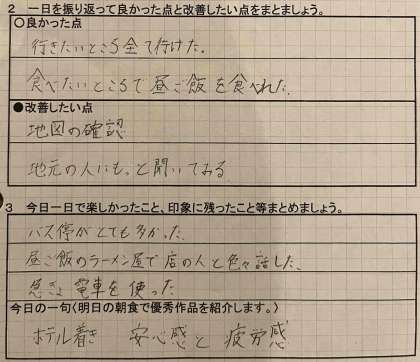 2 一日を振り返って良かった点と改善したい点をまとめましょう。
○良かった点
行きたいところ全て行けた.
食べたいところで昼ご飯を食べれた.
●改善したい点
地図の確認
地元の人にもっと聞いてみる
3 今日一日で楽しかったこと、印象に残ったこと等まとめましょう。
バス停がとても多かった.
昼ご飯のラーメン屋で店の人と色々話した.
急きょ電車を使った
今日の一句(明日の朝食で優秀作品を紹介します。)
ホテル着き 安心感と 疲労感